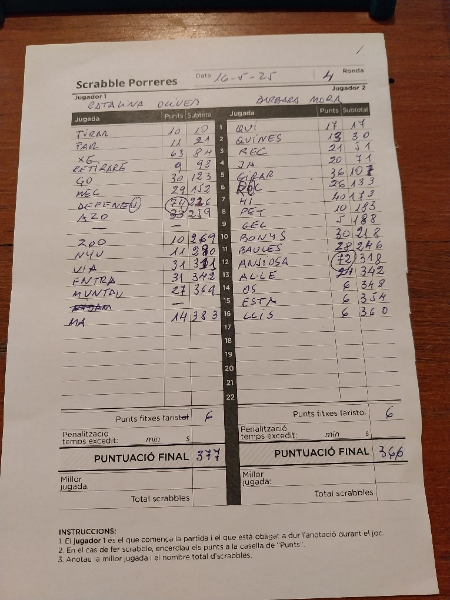 Scrabble Porreres
Data 16-5-25
4 Ronda
Jugador 1
Jugador 2
CATALINA OLIVER
BARBARA MORA
Jugada Punts Subtotal
Jugada Punts Subtotal
TIRAR 10 10 1 QUI 17 17
PAR 11 21 2 QUINES 13 30
XE 63 84 3 REC 21 51
RETIRARE 9 93 4 JA 20 71
GO 30 123 5 GIRAR 36 107
MEC 29 152 6 ROC 26 133
DEPENEU 74 226 7 HI 40 173
AZO 33 259 8 PET 10 183
— — 9 GEL 5 188
ZOO 10 269 10 BONYS 30 218
NYU 11 280 11 BAULES 28 246
VIA 31 311 12 ANSIOSA 72 318
ENTRA 31 342 13 ALLE 24 342
MUNTAU 27 369 14 OS 6 348
— 15 ESTA 6 354
MA 14 383 16 LLIS 6 360
17
18
19
20
21
22
Punts fitxes faristol: 6
Punts fitxes faristol: 6
Penalització temps excedit: min s
Penalització temps excedit: min s
PUNTUACIÓ FINAL 377
PUNTUACIÓ FINAL 366
Millor jugada:
Millor jugada:
Total scrabbles
Total scrabbles
INSTRUCCIONS:
1. El jugador 1 es el que comença la partida i el que està obligat a dur l'anotació durant el joc.
2. En el cas de fer scrabble, encerclau els punts a la casella de "Punts".
3. Anotau la millor jugada i el nombre total d'scrabbles.